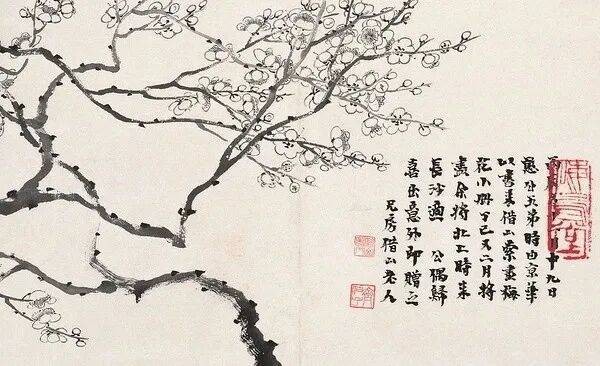 月十九日
五弟時由京華
以書來借山索畫梅
花小冊丁巳又二月將
畫余將北上時
長沙適 公 歸
喜出意外即贈之
借山老人